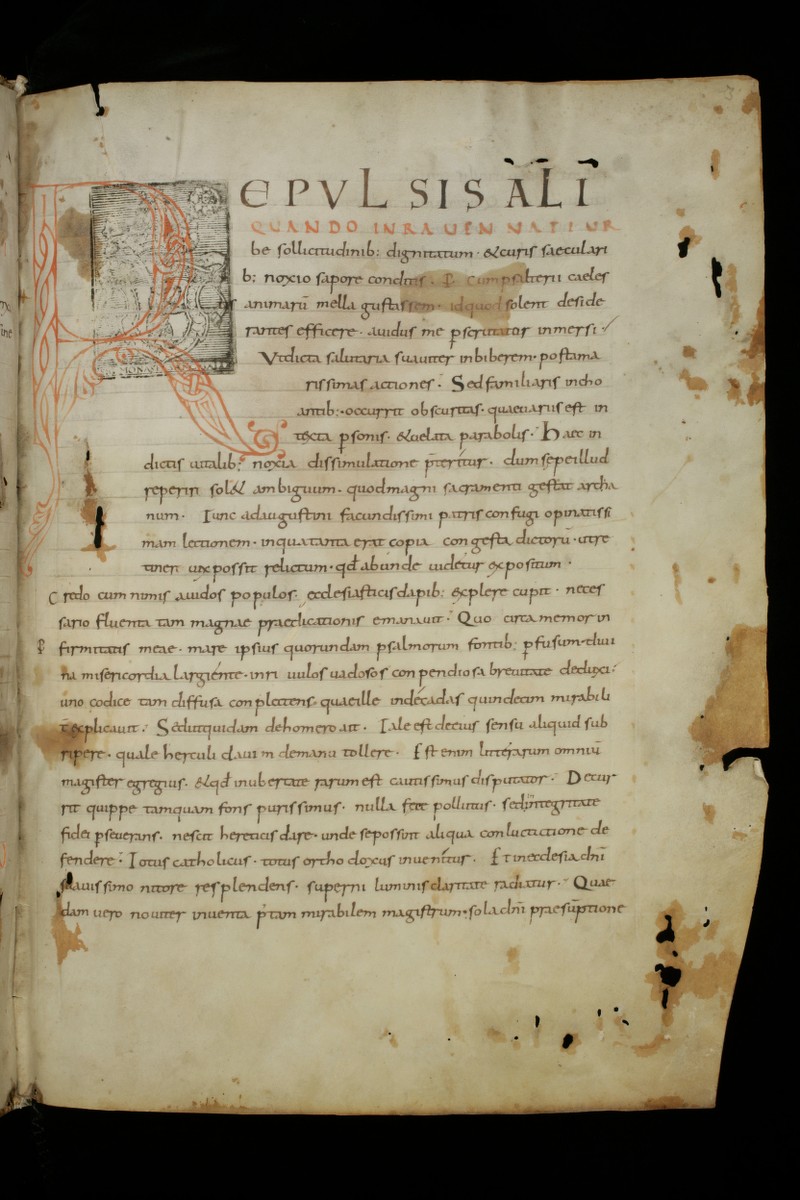 REPVLSIS ALI
QUANDO IN RAUEN NATI UR
be sollicitudinib; dignitatum · & curis saeculari
b; noxio sapore conditis · cum psalterii caeles
animarū mella gustassem · id quod solent deside
rantes efficere · auidus me pscrutator inmersi
Vt dicta salutaria suauiter inbiberem · post ama
rissimas actiones · Sed familiaris incho
antib; · occurrit obscuritas · quae uariis est in
texta psonis · & uelata parabolis · Haec in
dictis uitalib; noxia dissimulatione pteritur · dum sepe illud
reperiri sol& ambiguum · quod magni sacramenti gestat archa
num · Tunc ad augustini facundissimi patris confugi opinatissi
mam lectionem · in qua tanta erat copia congesta dictorū · ut re
tineri uix possit relectum · qd abunde uidetur expositum ·
Credo cum nimis auidos populos ecclesiasticis dapib; explere cupit · neces
sario fluenta tam magnae praedicationis emanauit · Quo circa memor in
firmitatis meae · mare ipsius quorundam psalmorum fontib; pfusum · diui
na misericordia largiente · in riuulos uadosos conpendiosa breuitate deduxi ·
uno codice tam diffusa conplectens · quae ille in decadas quindecim mirabili
t explicauit · Sed ut quidam de homero ait · Tale est de eius sensu aliquid sub
ripere · quale herculi clauim de manu tollere · Est enim litterarum omniū
magister egregius · & qd in ubertate rarum est cautissimus disputator · Decur
rit quippe tamquam fons purissimus · nulla fece pollutus · sed in integritate
fidei pseuerans · nescit hereticis dare · unde se possint aliqua conluctatione de
fendere · Totus catholicus · totus orthodoxus inuenitur · Et in ecclesia dni
suauissimo nitore resplendens · superni luminis claritate radiatur · Quae
dam uero nouiter inuenta p tam mirabilem magistrum · sola dni praesumptione